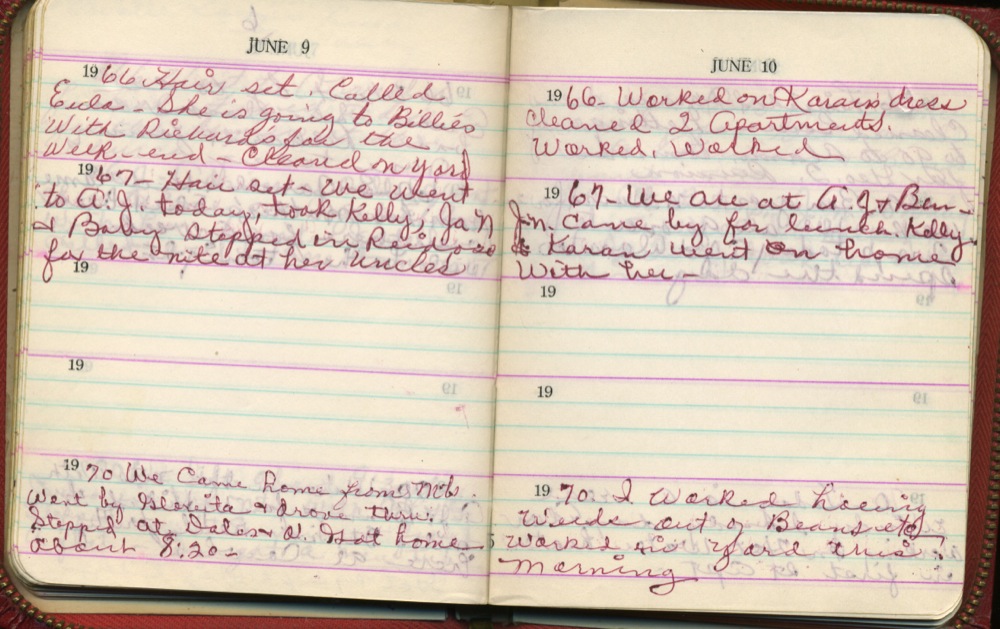 JUNE 9
1966 Hair set. Called
Eula - She is going to Billies
With Richards for the
Week-end - Cleaned n yard
1967 - Hair set - We went
to A.J. today, took Kelly, Ja'N
& Baby stopped in
for the nite at her Uncles
19
19
1970 We Came home from
Went by & drove thru.
Stopped at Dales & V. Got home
about 8:20 -
JUNE 10
1966 - Worked on Karan's dress
Cleaned 2 Apartments.
Worked, Worked
1967 - We are at A.J & Ben -
J'n. Came by for lunch. Kelly
& Karan went on home
With her -
19
19
1970. I Worked hoeing
Weeds out of Beans etc
Worked in yard this
morning